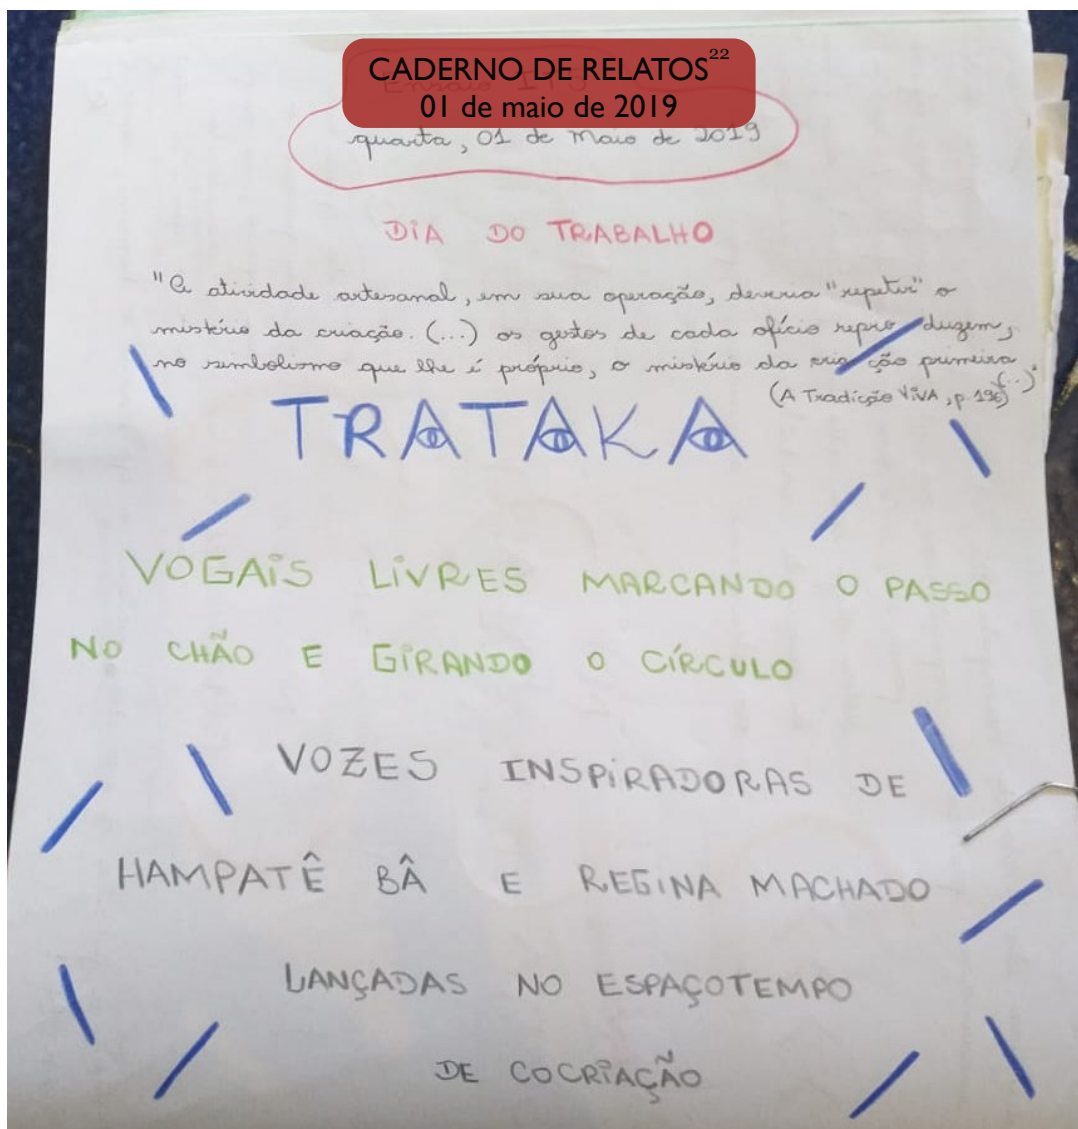 CADERNO DE RELATOS²²
01 de maio de 2019
quarta, 01 de Maio de 2019
DIA DO TRABALHO
"A atividade artesanal, em sua operação, deveria "repetir" o
mistério da criação. (...) os gestos de cada ofício repro duzem,
no simbolismo que lhe é próprio, o mistério da cria ção primeira
(...)"
(A Tradição VIVA, p. 196)
TRATAKA
VOGAIS LIVRES MARCANDO O PASSO
NO CHÃO E GIRANDO O CÍRCULO
VOZES INSPIRADORAS DE
HAMPATÊ BÂ E REGINA MACHADO
LANÇADAS NO ESPAÇOTEMPO
DE COCRIAÇÃO